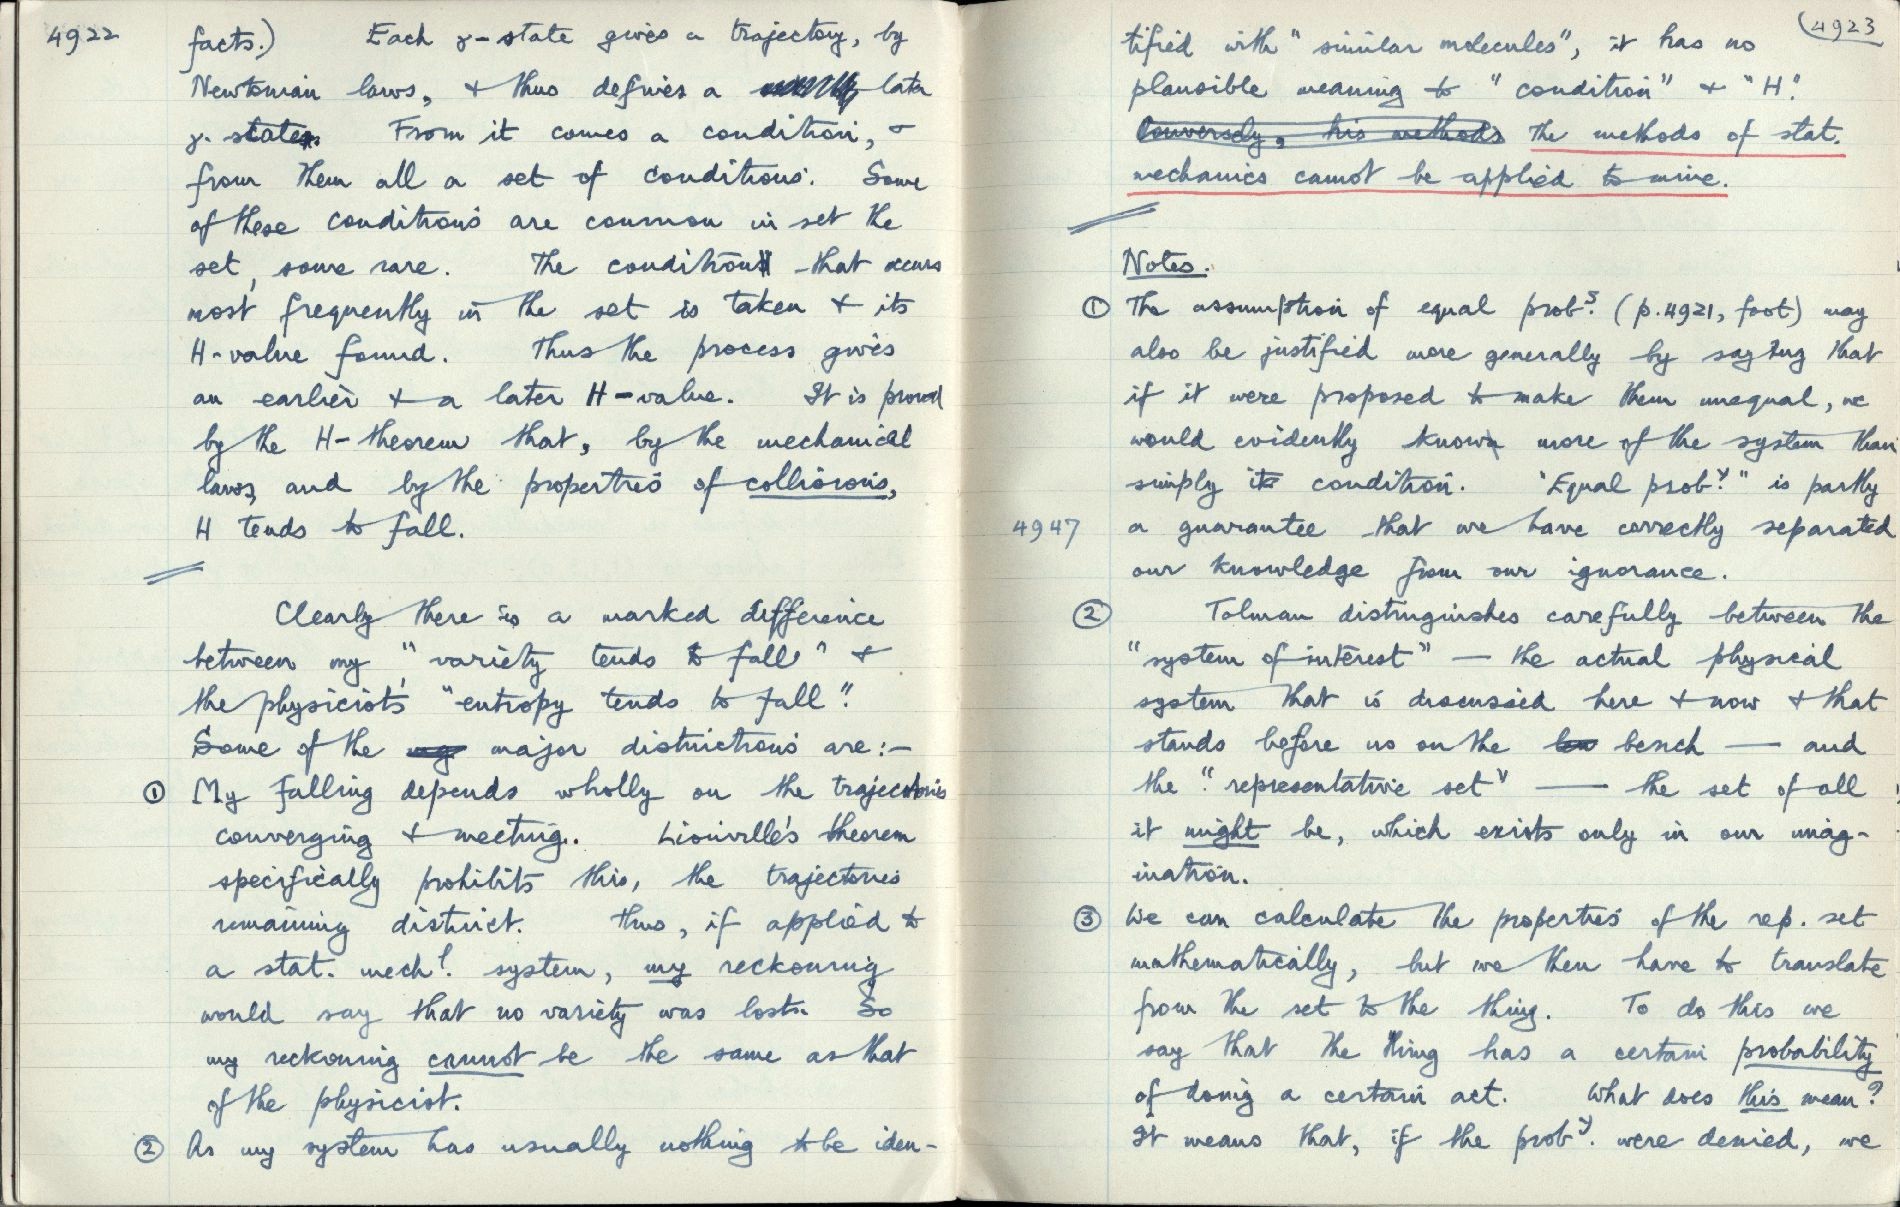 4922
facts.) Each γ-state gives a trajectory, by
Newtonian laws, & thus defines a later
γ-state. From it comes a condition, &
from them all a set of conditions. Some
of these conditions are common in set the
set, some rare. The condition that occurs
most frequently in the set is taken & its
H-value found. Thus the process gives
an earlier & a later H-value. It is proved
by the H-theorem that, by the mechanical
laws, and by the properties of collisions,
H tends to fall.
Clearly there is a marked difference
between my "variety tends to fall" &
the physicists' "entropy tends to fall".
Some of the major distinctions are:-
① My falling depends wholly on the trajectories
converging & meeting. Liouville's theorem
specifically prohibits this, the trajectories
remaining distinct. Thus, if applied to
a stat. mechl. system, my reckoning
would say that no variety was lost. So
my reckoning cannot be the same as that
of the physicist.
② As my system has usually nothing to be iden-
4923
tified with "similar molecules", it has no
plausible meaning to "condition" & "H".
Conversely, his methods The methods of stat.
mechanics cannot be applied to mine.
Notes.
① The assumption of equal probs. (p.4921, foot) may
also be justified more generally by saying that
if it were proposed to make them unequal, we
would evidently know more of the system than
simply its condition. "Equal proby." is partly
4947
a guarantee that we have correctly separated
our knowledge from our ignorance.
② Tolman distinguishes carefully between the
"system of interest" — the actual physical
system that is discussed here & now & that
stands before us on the bench — and
the "representative set" — the set of all
it might be, which exists only in our imag-
ination.
③ We can calculate the properties of the rep. set
mathematically, but we then have to translate
from the set to the thing. To do this we
say that the thing has a certain probability
of doing a certain act. What does this mean?
It means that, if the proby. were denied, we